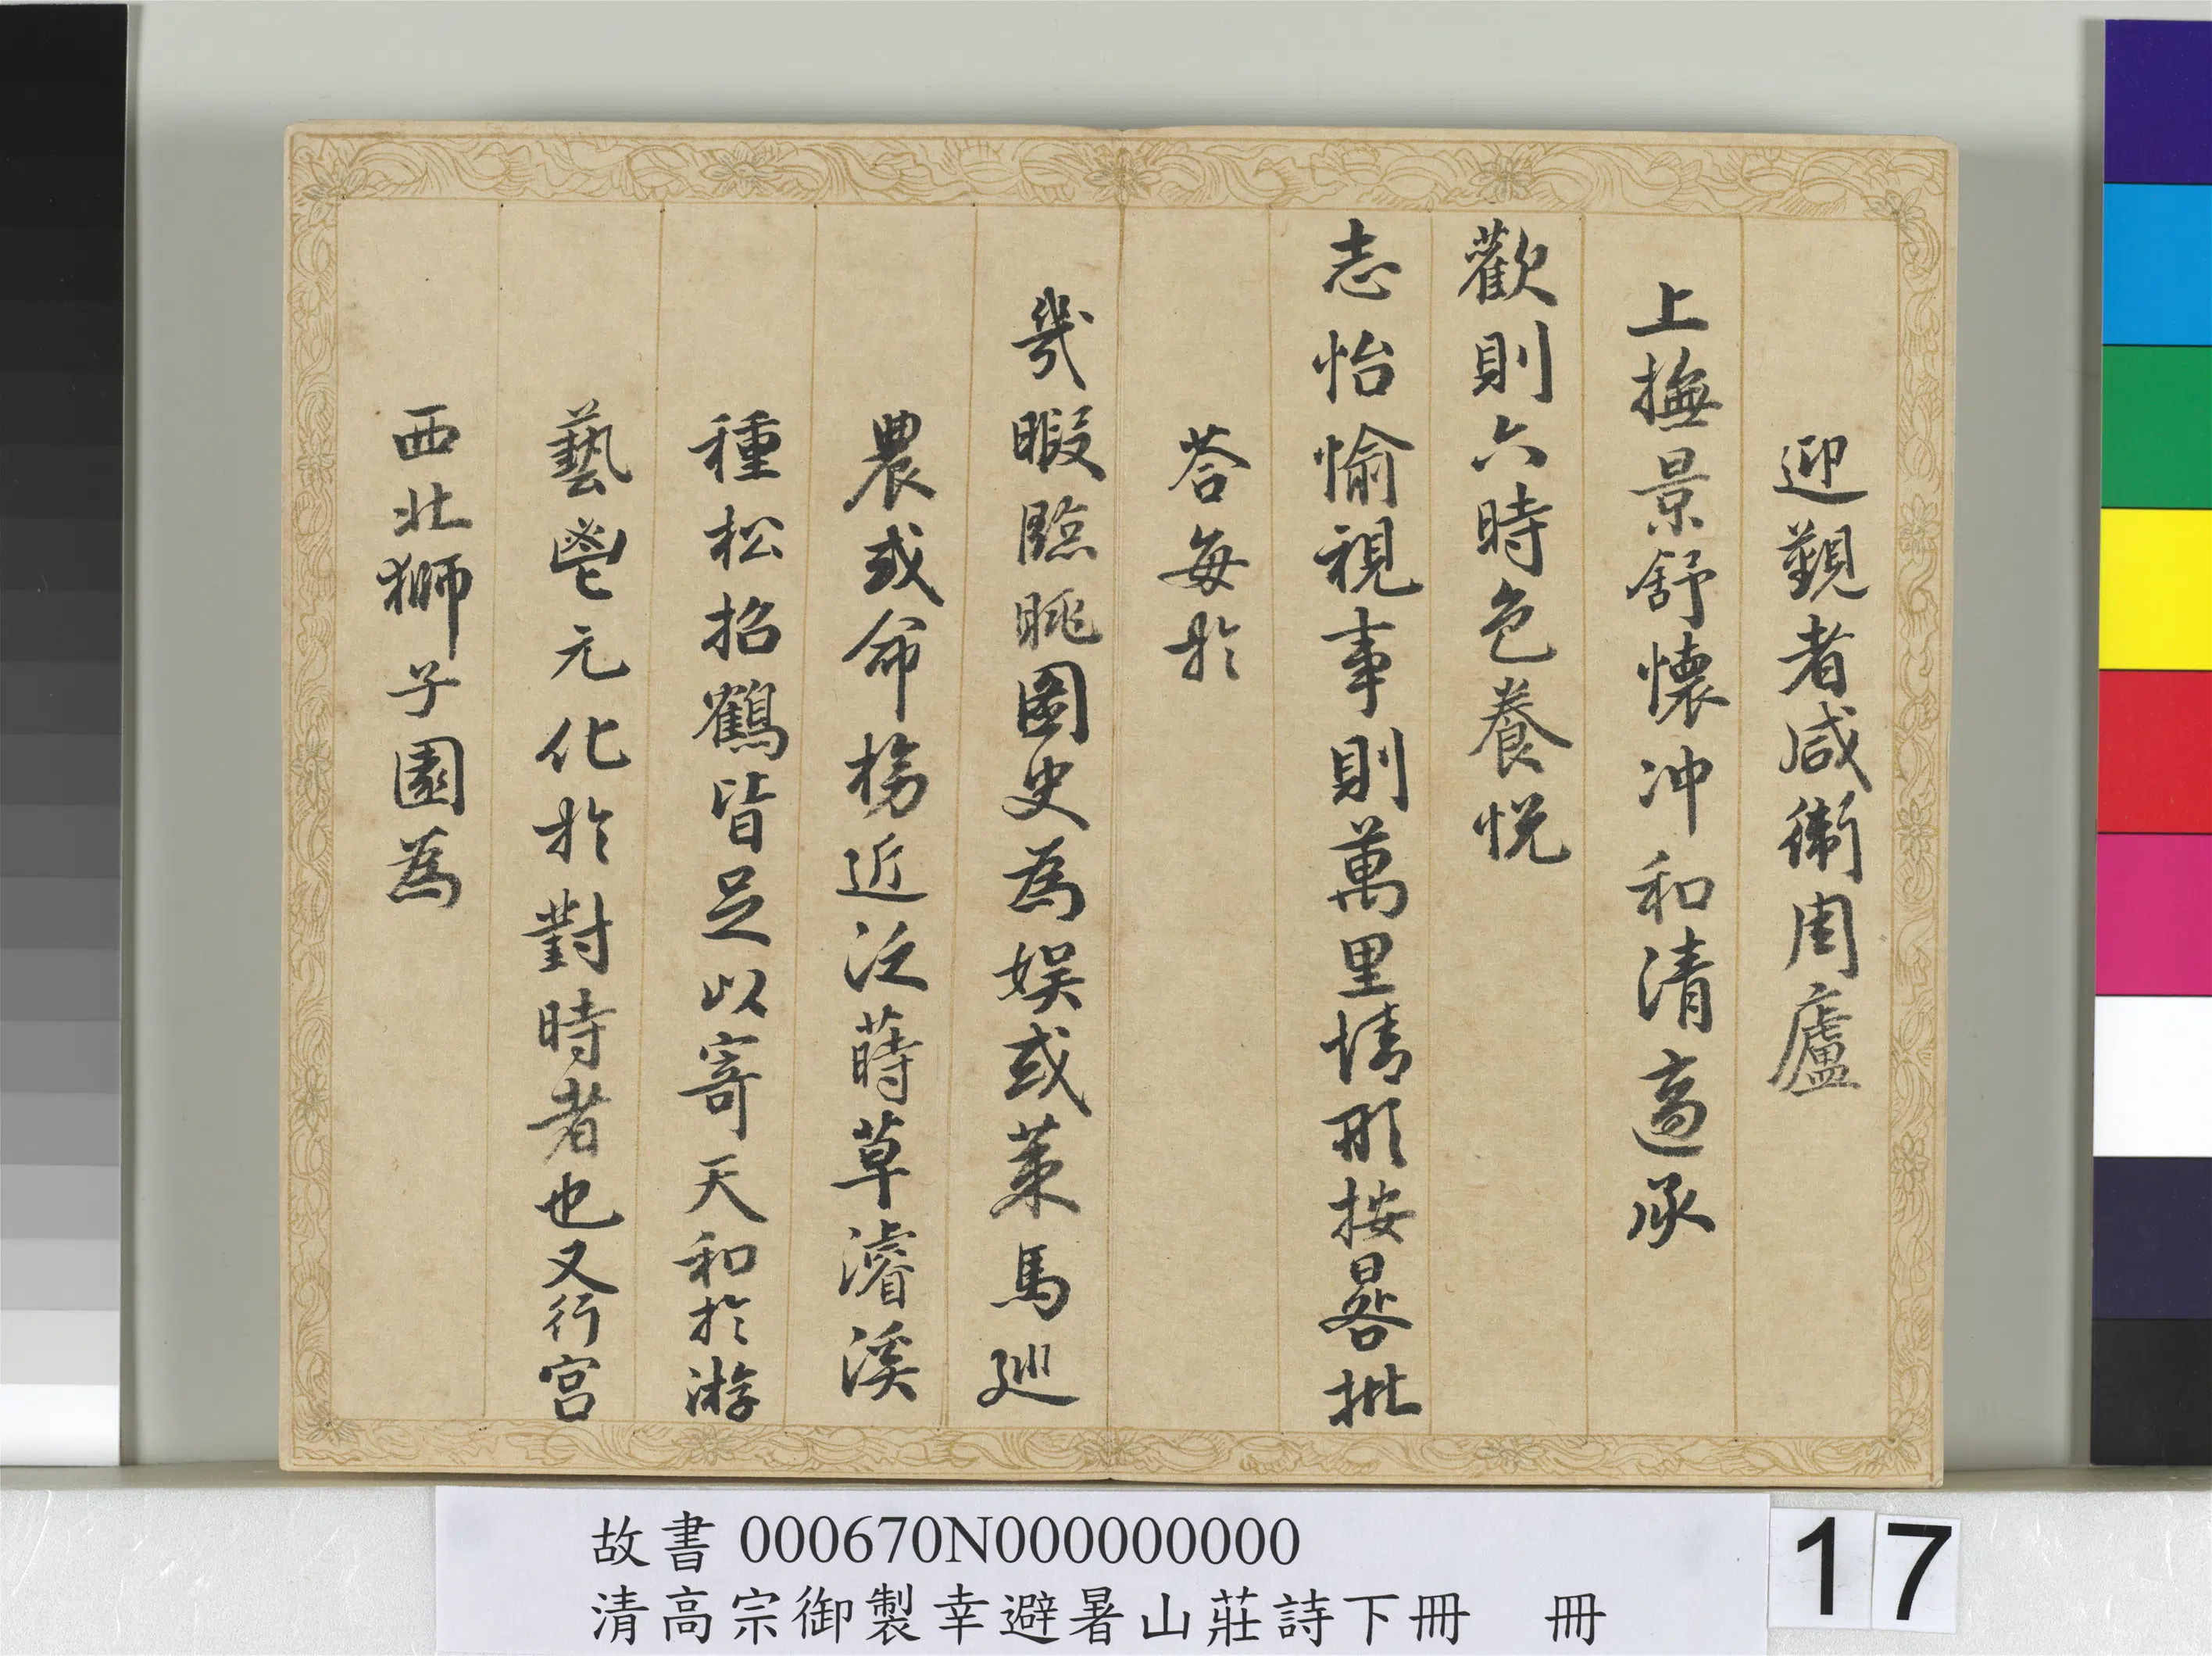 迎覲者咸衛周廬
上撫景舒懷冲和清適承
歡則六時色養悅
志怡愉視事則萬里情形按晷批
荅每於
幾暇臨眺圖史為娛或策馬巡
農或命榜近泛蒔草濬溪
種松招鶴皆足以寄天和於游
藝鬯元化於對時者也又行宮
西北獅子園為
故書 000670N000000000
清高宗御製幸避暑山莊詩下冊 冊
17